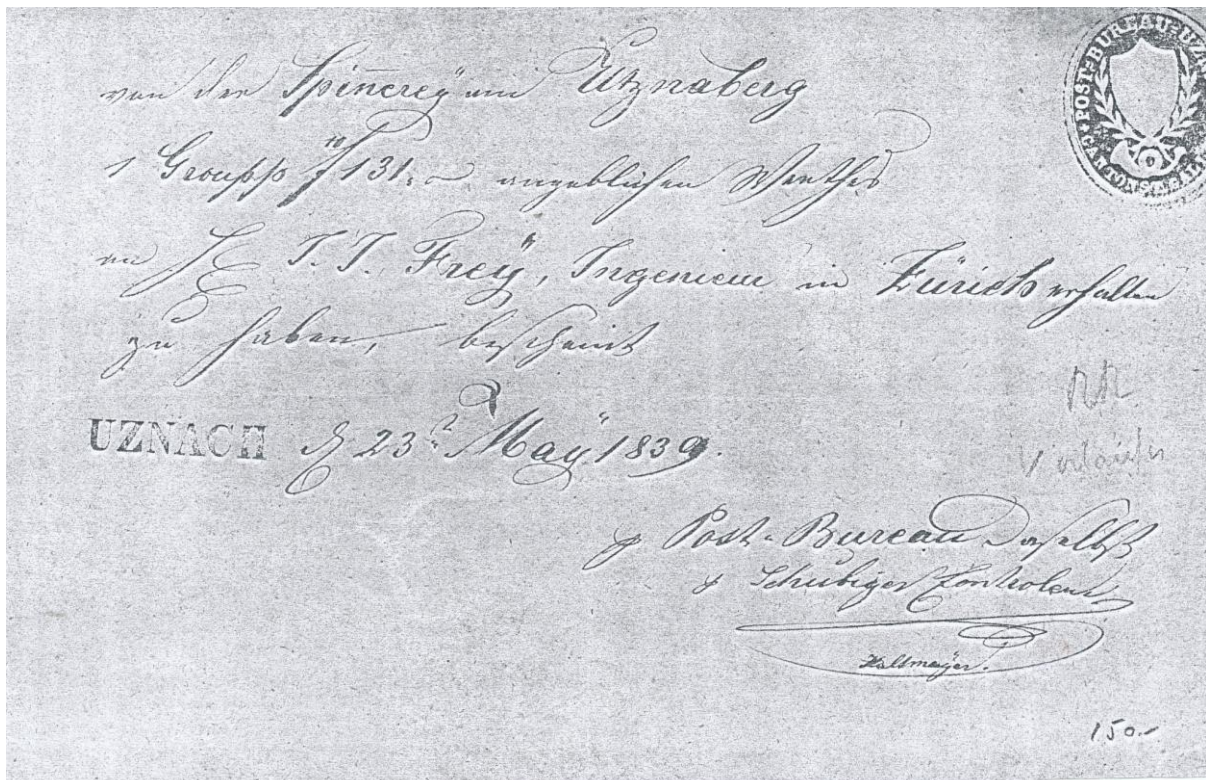 von der Spinnerey am Utznaberg
1 Groupp f 131.– angeblichen Werthes
an H. J. J. Freÿ, Ingenieur in Zürich erhalten
zu haben, bescheint
UZNACH d. 23t. Maÿ 1839.
p Post-Bureau daselbst
p Schubiger Controleur
Hallmayer.
150.–
POST-BUREAU-UZNA
CANTON ST.